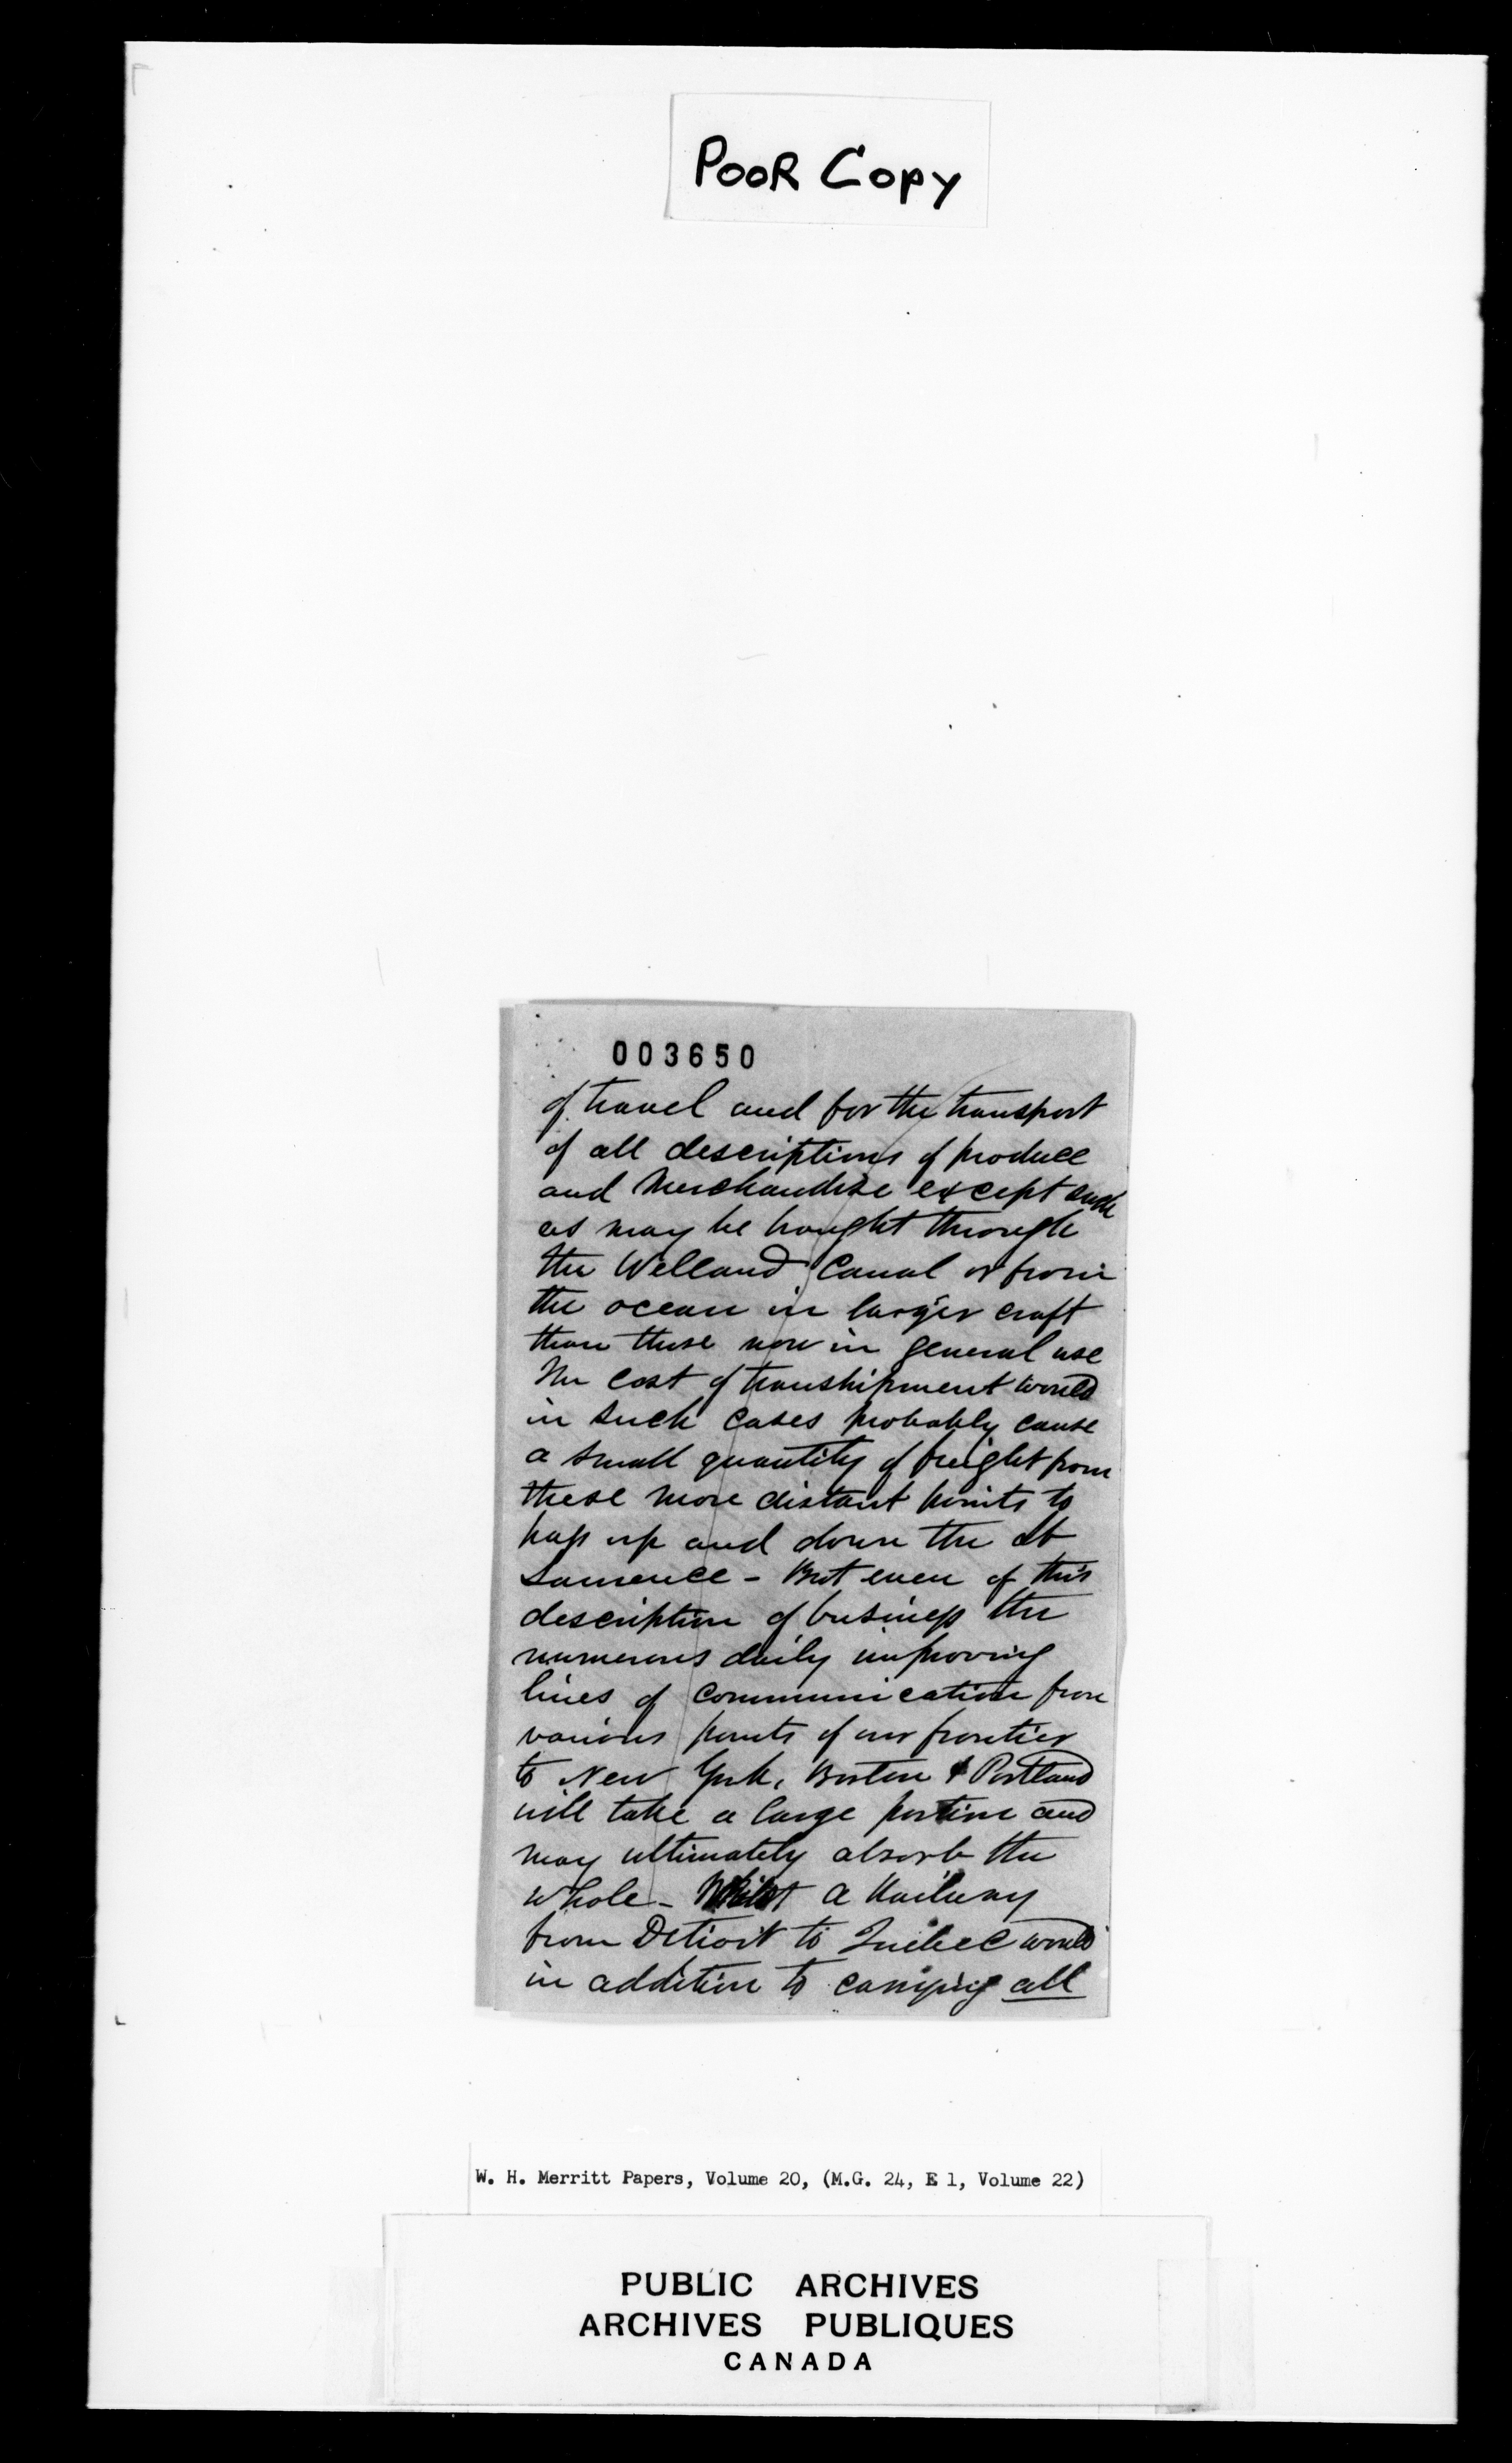 POOR COPY
003650
of travel and for the transport
of all descriptions of produce
and Merchandize except such
as may be brought through
the Welland Canal or from
the ocean in larger craft
than those now in general use
The cost of transhipment would
in such cases probably cause
a small quantity of freight from
these more distant points to
pass up and down the St
Lawrence - But even of this
description of business the
numerous daily improving
lines of communication from
various points of our frontier
to New York, Boston & Portland
will take a large portion and
may ultimately absorb the
whole - Whilst a Railway
from Detroit to Quebec would
in addition to carrying all
W. H. Merritt Papers, Volume 20, (M.G. 24, E 1, Volume 22)
PUBLIC ARCHIVES
ARCHIVES PUBLIQUES
CANADA